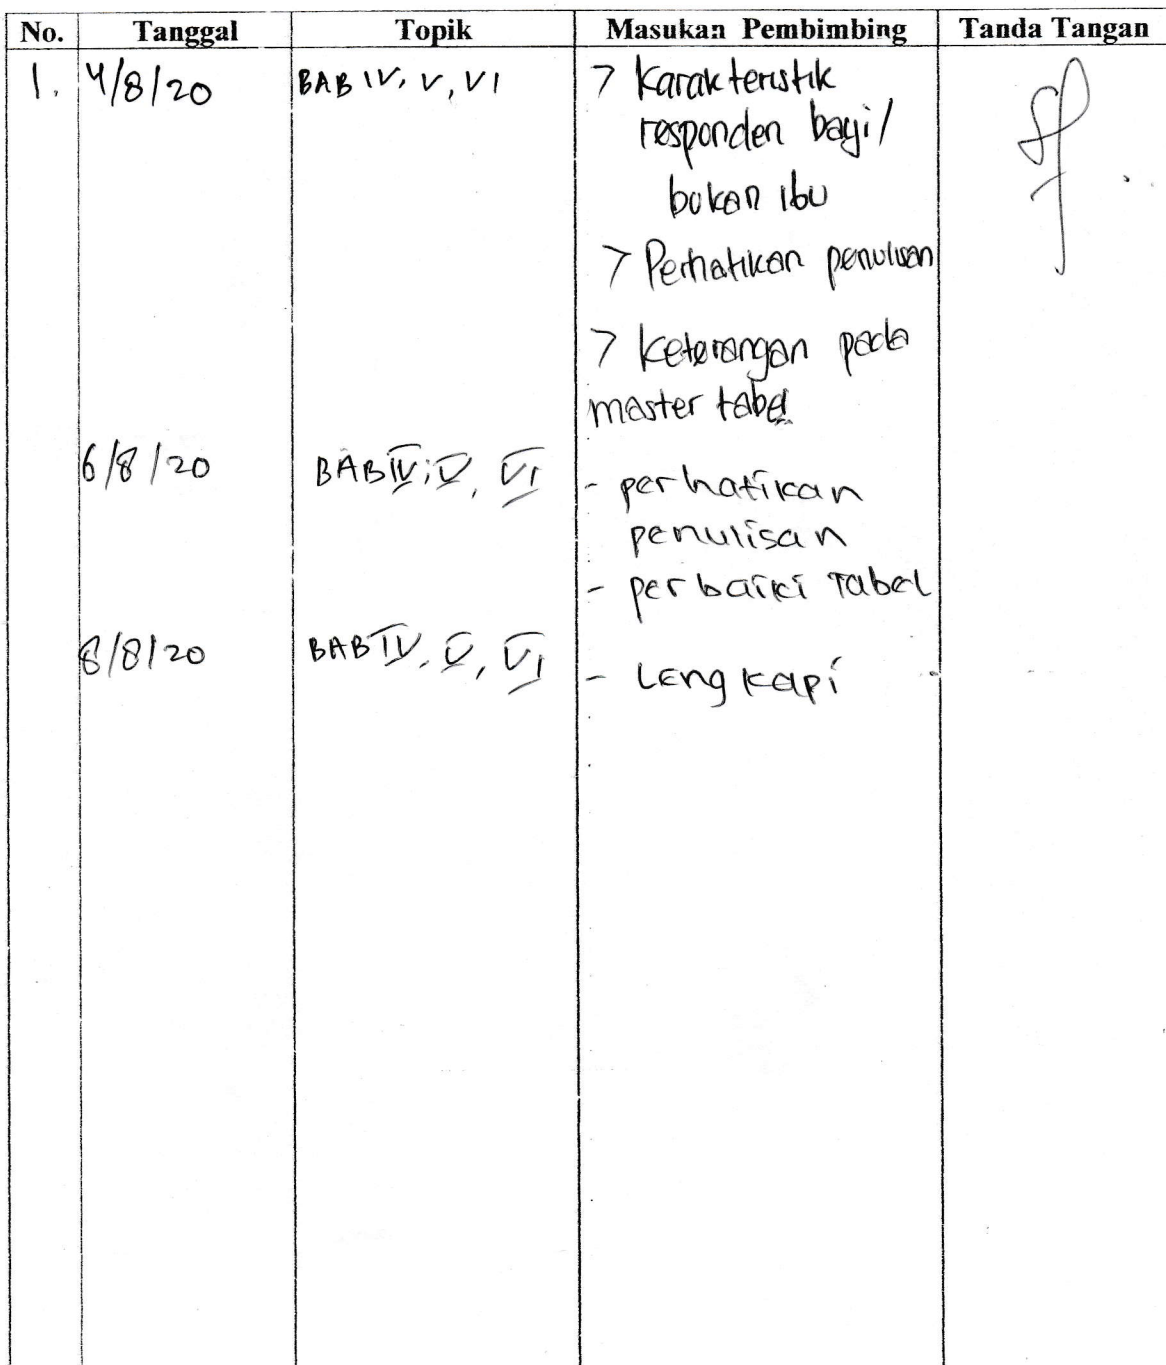 No. Tanggal Topik Masukan Pembimbing Tanda Tangan
1. 4/8/20 BAB IV, V, VI > Karakteristik
responden bayi/
bukan ibu
> Perhatikan penulisan
> Keterangan pada
master tabel
6/8/20 BAB IV, V, VI - perhatikan
penulisan
- perbaiki Tabel
8/8/20 BAB IV, V, VI - Lengkapi